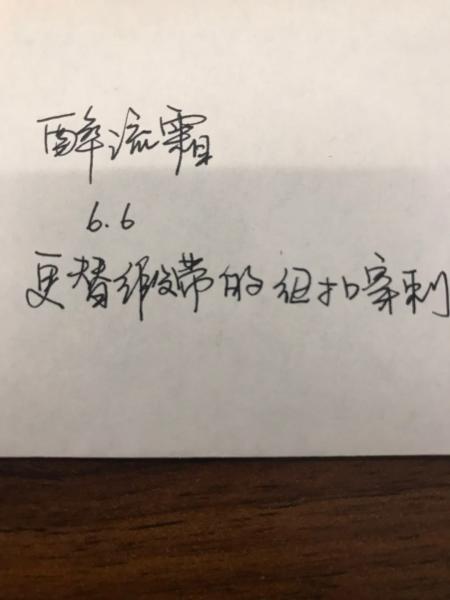 醉流霜
6.6
更替缎带的纽扣穿刺